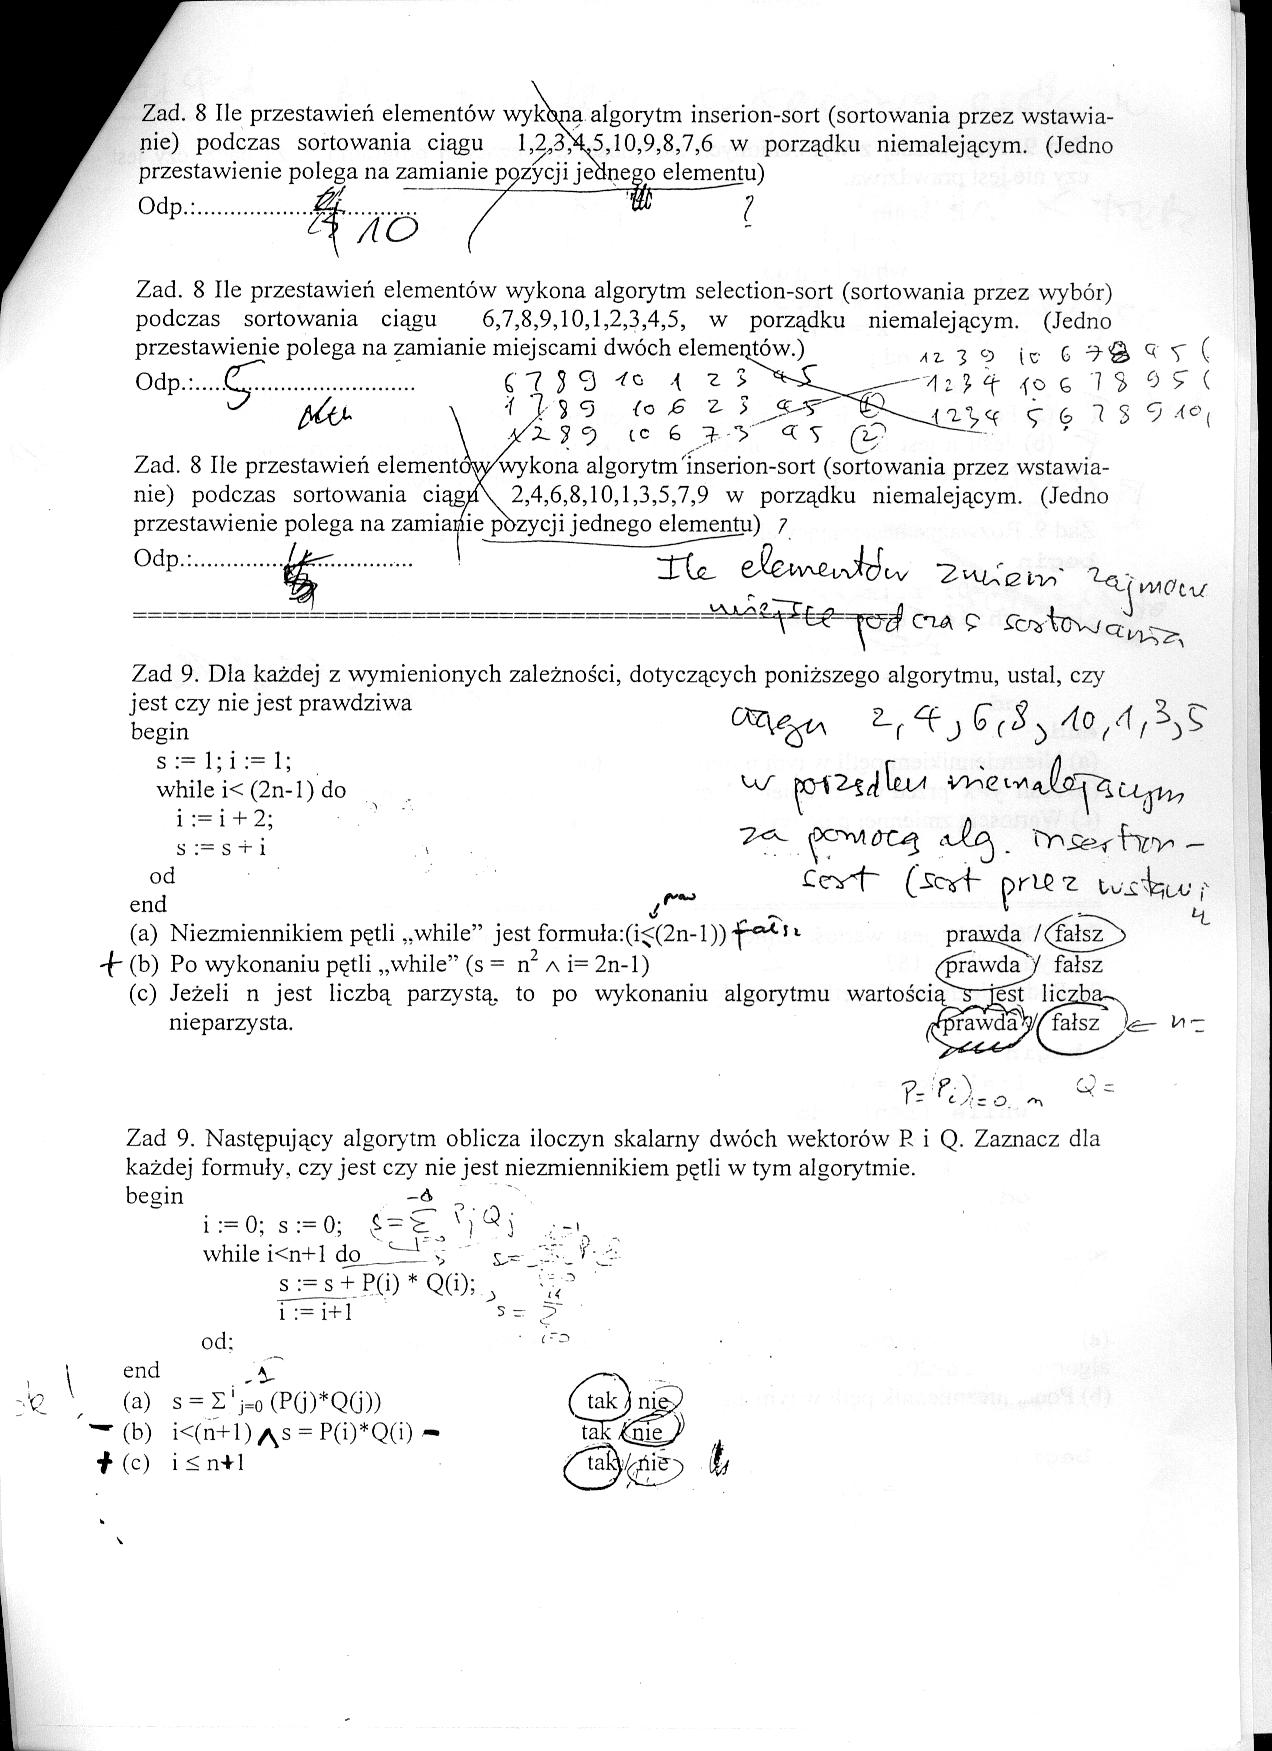 Zad. 8 Ile przestawień elementów wykona algorytm inserion-sort (sortowania przez wstawia-
nie) podczas sortowania ciągu 1,2,3,4,5,10,9,8,7,6 w porządku niemalejącym. (Jedno
przestawienie polega na zamianie pozycji jednego elementu)
Odp.:.................................. 10 ?
Zad. 8 Ile przestawień elementów wykona algorytm selection-sort (sortowania przez wybór)
podczas sortowania ciągu 6,7,8,9,10,1,2,3,4,5, w porządku niemalejącym. (Jedno
przestawienie polega na zamianie miejscami dwóch elementów.)
Odp.:....5..........................
6 7 8 9 10 1 2 3 4 5
1 7 8 9 10 6 2 3 4 5 1
1 2 8 9 10 6 7 3 4 5 2
1 2 3 9 10 6 7 8 4 5
1 2 3 4 10 6 7 8 9 5
1 2 3 4 5 6 7 8 9 10
Zad. 8 Ile przestawień elementów wykona algorytm inserion-sort (sortowania przez wstawia-
nie) podczas sortowania ciągu 2,4,6,8,10,1,3,5,7,9 w porządku niemalejącym. (Jedno
przestawienie polega na zamianie pozycji jednego elementu) ?
Odp.:..................................
Ile elementów zmieni zajmow
miejsce podczas sortowania
ciągu 2,4,6,8,10,1,3,5
w porządku niemalejącym
za pomocą alg. insertion-
sort (sort przez wstawi
Zad 9. Dla każdej z wymienionych zależności, dotyczących poniższego algorytmu, ustal, czy
jest czy nie jest prawdziwa
begin
s := 1; i := 1;
while i< (2n-1) do
i := i + 2;
s := s + i
od
end
(a) Niezmiennikiem pętli „while” jest formuła:(i≤(2n-1)) fałsz prawda / fałsz
+ (b) Po wykonaniu pętli „while” (s = n² ∧ i= 2n-1) prawda / fałsz
(c) Jeżeli n jest liczbą parzystą, to po wykonaniu algorytmu wartością s jest liczba
nieparzysta. prawda / fałsz ← n=
P= (Pi)i=0..n Q=
Zad 9. Następujący algorytm oblicza iloczyn skalarny dwóch wektorów P i Q. Zaznacz dla
każdej formuły, czy jest czy nie jest niezmiennikiem pętli w tym algorytmie.
begin
i := 0; s := 0;
while i<n+1 do
s := s + P(i) * Q(i);
i := i+1
od;
end
(a) s = Σⁱ⁻¹j=0 (P(j)*Q(j)) tak / nie
– (b) i<(n+1) ∧ s = P(i)*Q(i) – tak / nie
+ (c) i ≤ n+1 tak / nie